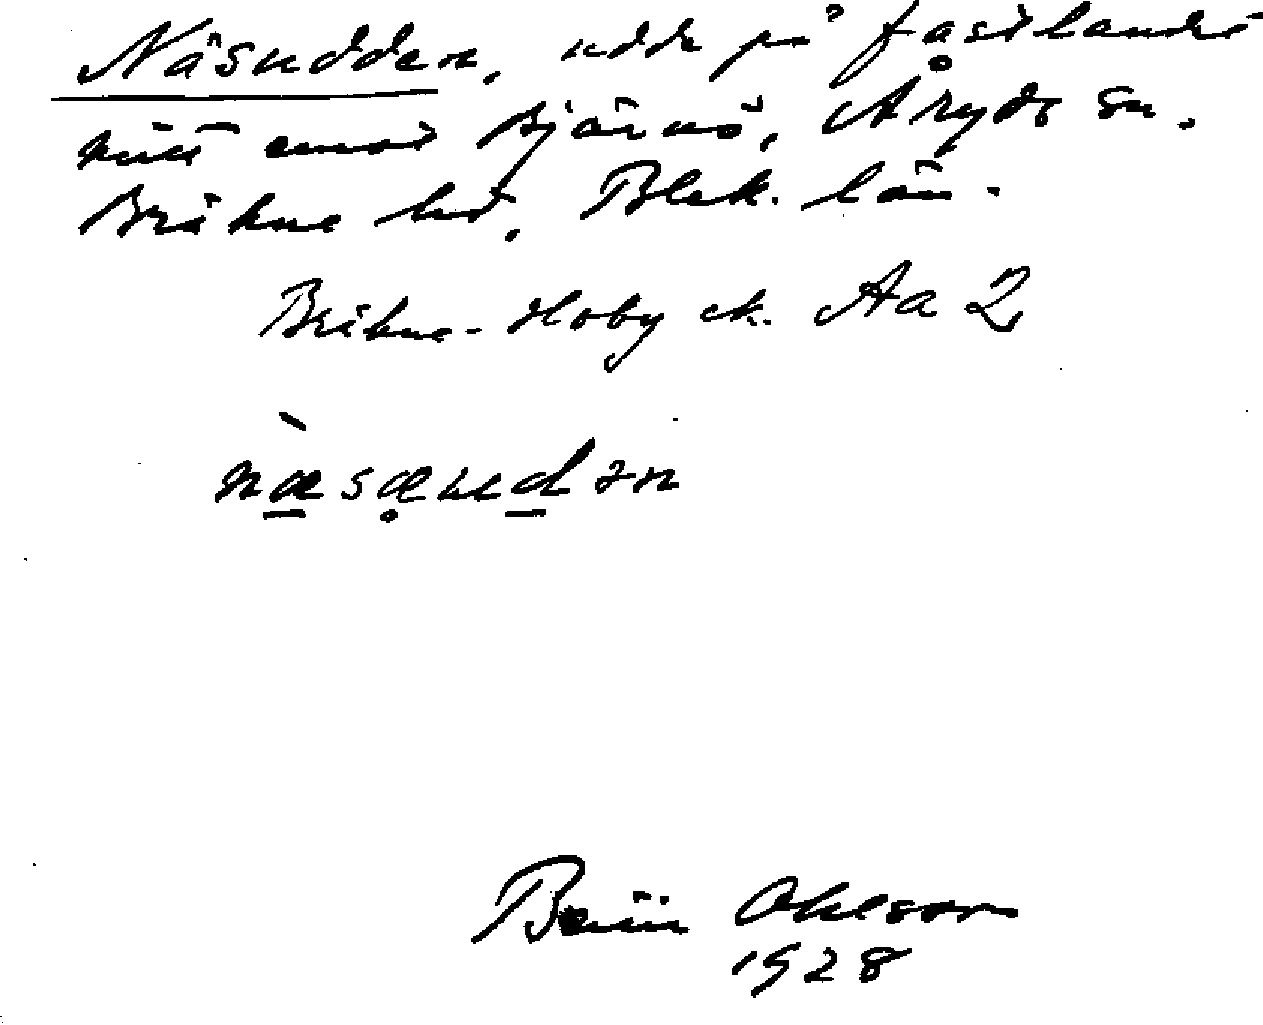 Näsudden, udde på fastlandet
mitt emot Bjärnö, Åryds sn.
Bräkne hd, Blek. län.
Bräkne-Hoby ek. Aa 2
næ̀sæudən
Ohlsson
1928